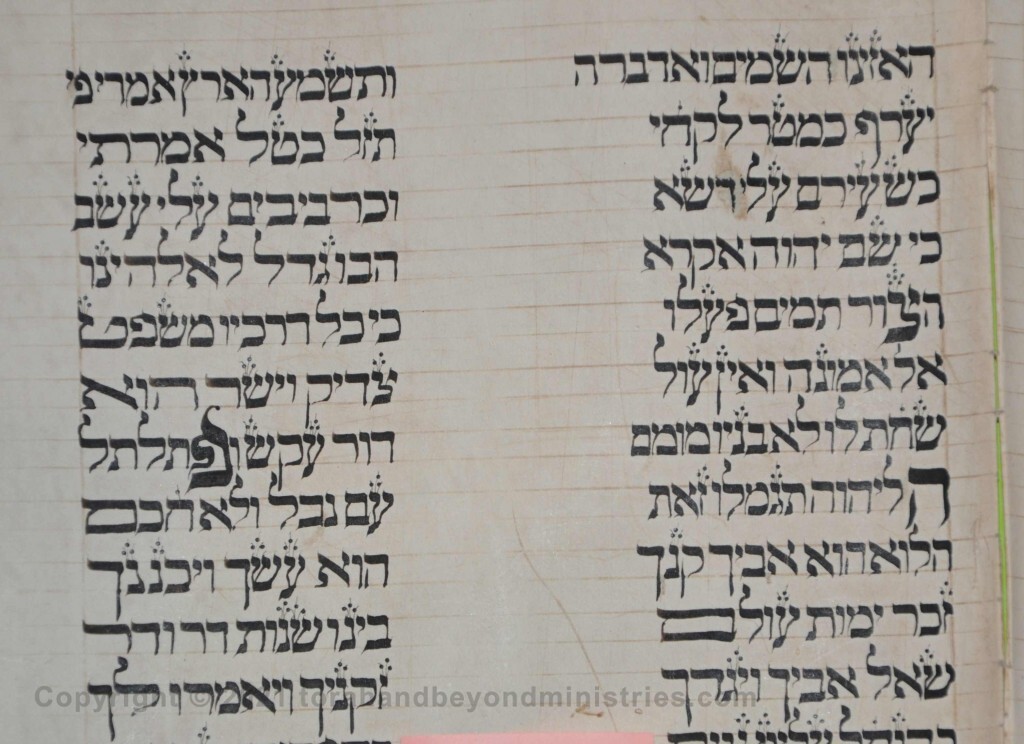 האזינו השמים ואדברה ותשמע הארץ אמרי פי
יערף כמטר לקחי תזל כטל אמרתי
כשעירם עלי דשא וכרביבים עלי עשב
כי שם יהוה אקרא הבו גדל לאלהינו
הצור תמים פעלו כי כל דרכיו משפט
אל אמונה ואין עול צדיק וישר הוא
שחת לו לא בניו מומם דור עקש ופתלתל
ה ליהוה תגמלו זאת עם נבל ולא חכם
הלוא הוא אביך קנך הוא עשך ויכננך
זכר ימות עולם בינו שנות דר ודר
שאל אביך ויגדך זקניך ויאמרו לך
Copyright © torahandbeyondministries.com